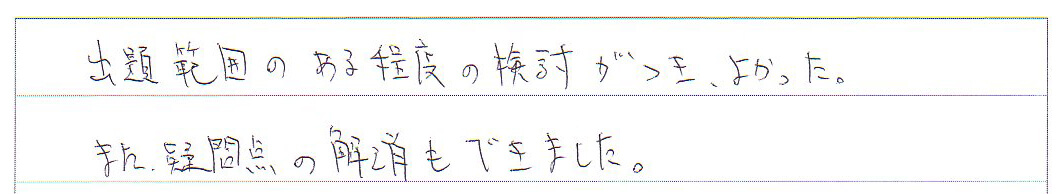 出題範囲のある程度の検討がつき、よかった。
また、疑問点の解消もできました。